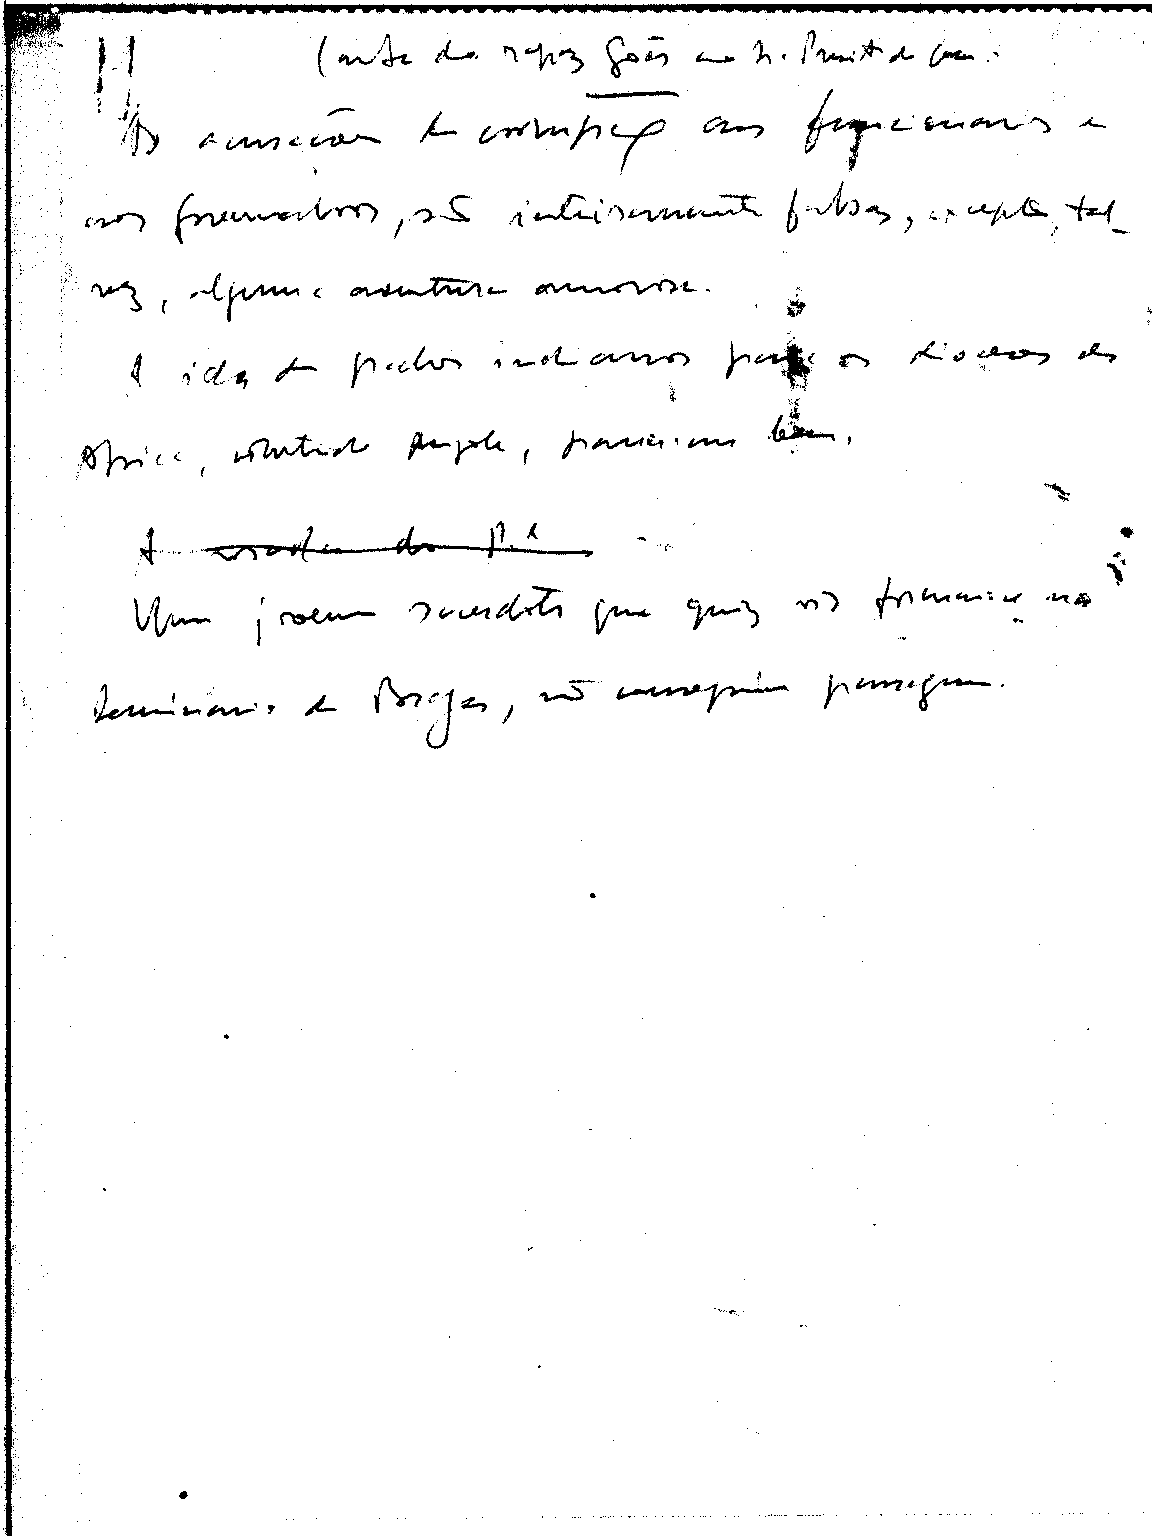 Carta do rapaz Goês ao Sr. Presid. do Cons.
As acusações de corrupção aos funcionarios e
aos governadores, são inteiramente falsas, excepto, tal-
vez, alguma aventura amorosa.
A ida de padres indianos para as dioceses de
Africa, sobretudo Angola, parecia-me bem.
A do P.e
Um jovem sacerdote que quiz vir formar-se no
Seminario de Braga, não conseguiu passagem.